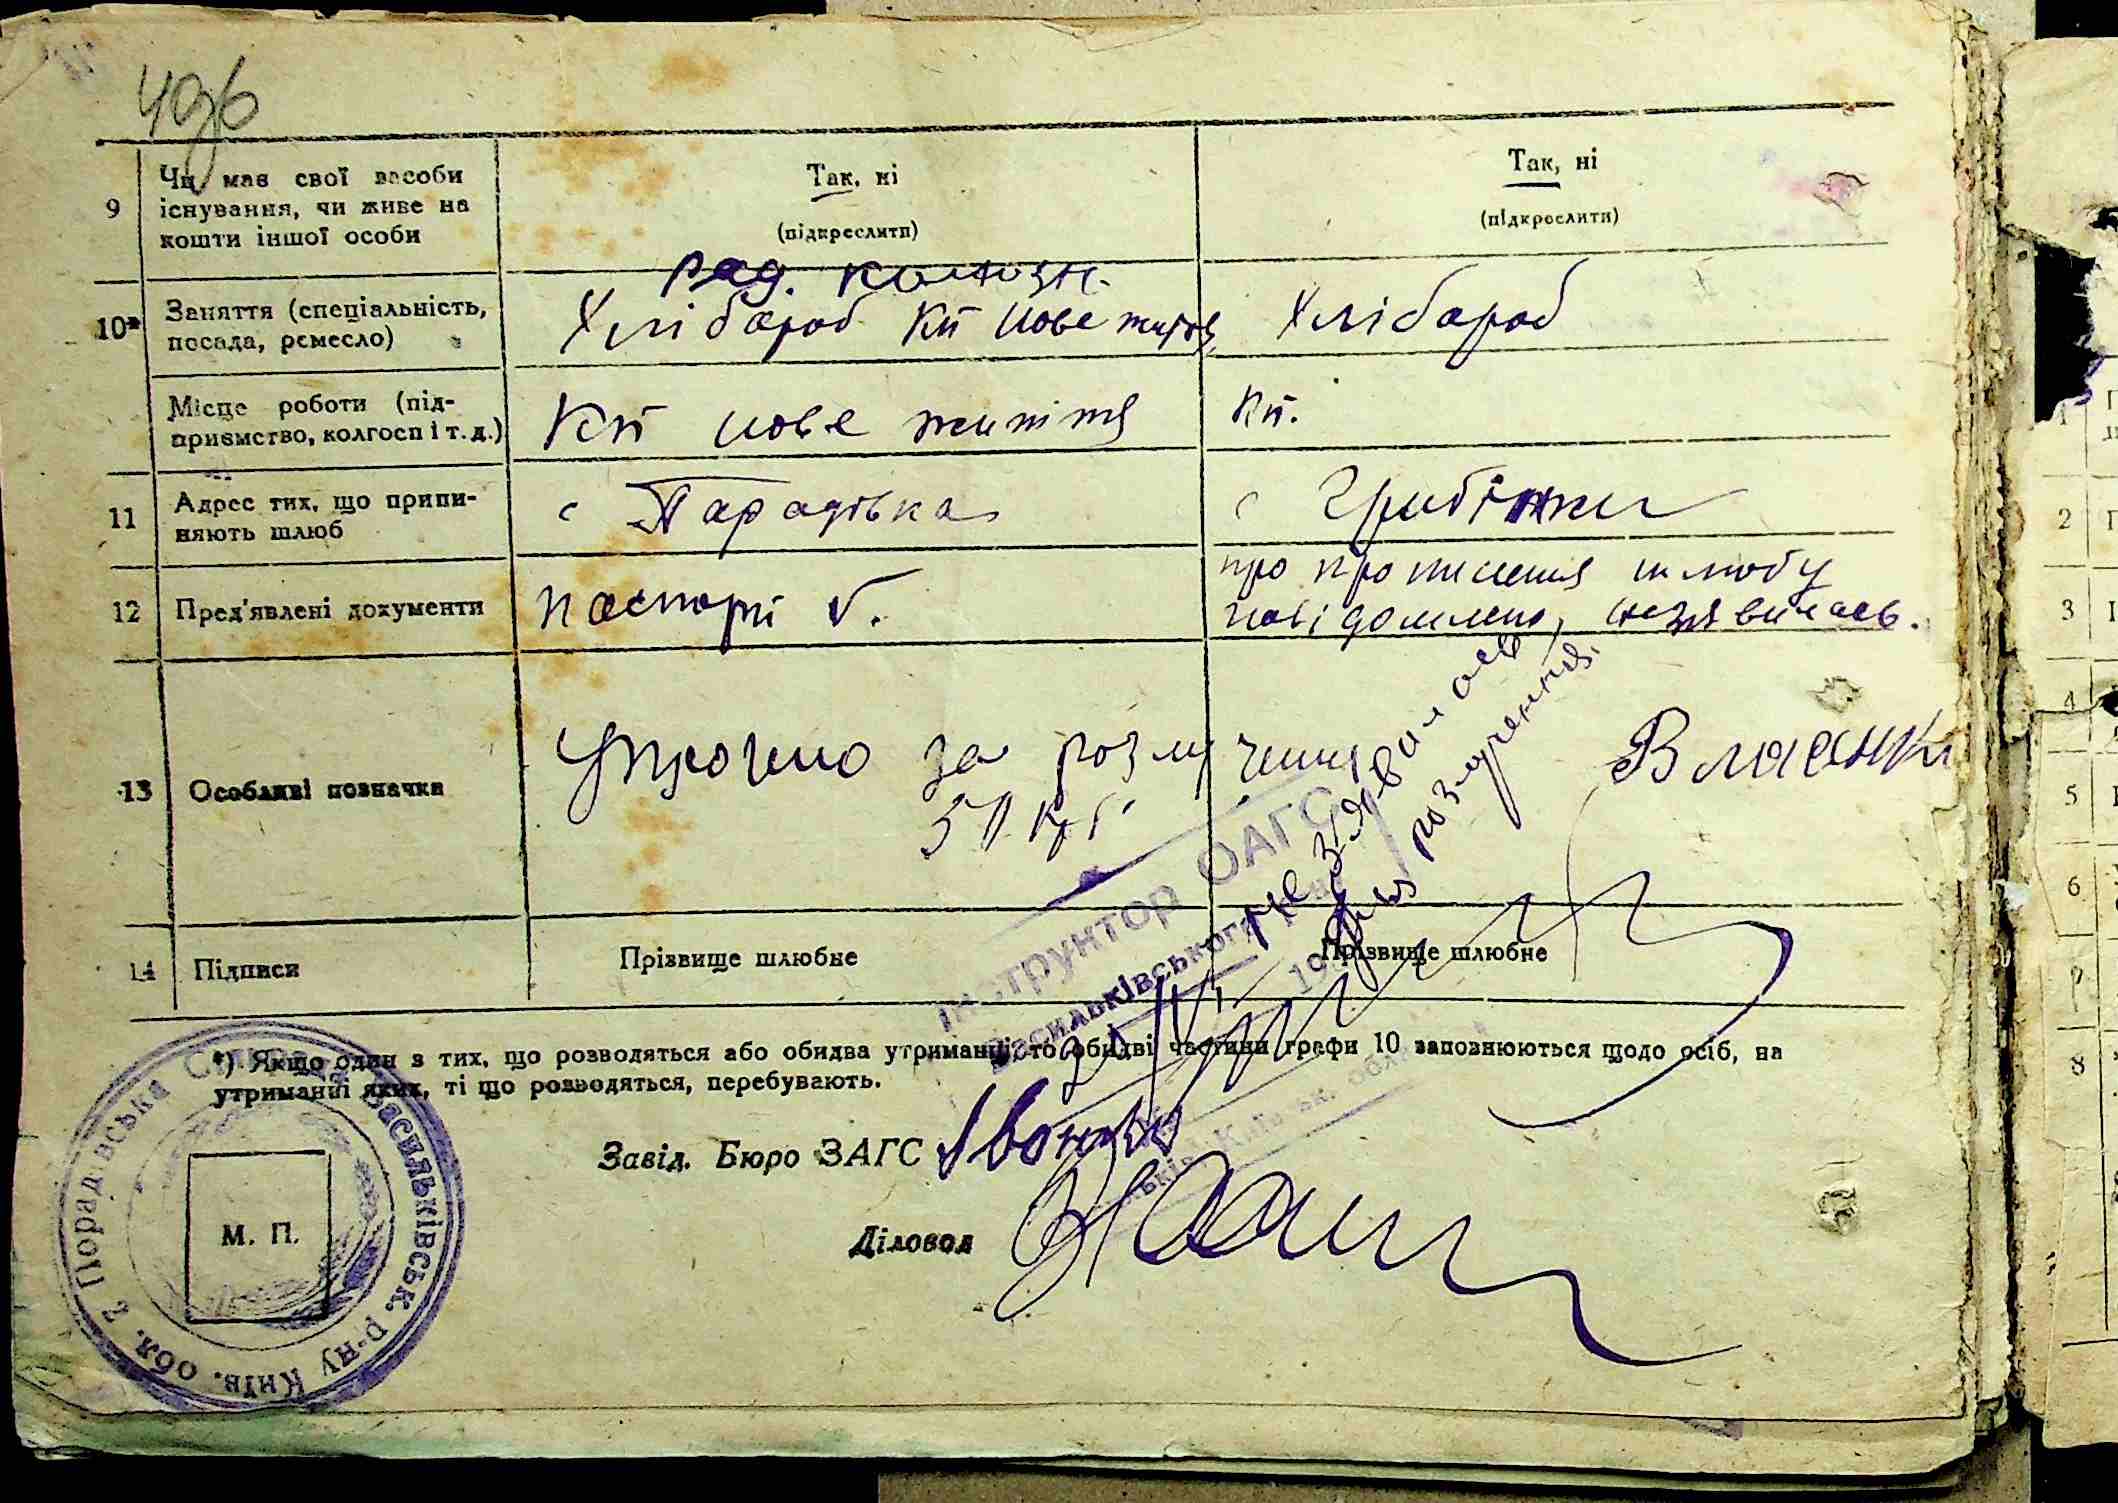 9
Чи має свої засоби
існування, чи живе на
кошти іншої особи
Так, ні
(підкреслити)
Так, ні
(підкреслити)
10*
Заняття (спеціальність,
посада, ремесло)
ряд. колгозн.
Хлібороб КП Нове життя
Хлібороб
Місце роботи (під-
приємство, колгосп і т. д.)
КП нове життя
КП.
11
Адрес тих, що припи-
няють шлюб
с Парадівка
с Гребінки
12
Пред'явлені документи
Паспорт
про припинення шлюбу
повідомлено, незявилась.
13
Особливі позначки
Уплочено за розлучення
50 крб.
не зявилась
для розлучення.
14
Підписи
Прізвище шлюбне
Прізвище шлюбне
Інструктор ОАГС
Васильківського
*) Якщо один з тих, що розводяться або обидва утриманці, то обидві частини графи 10 заповнюються щодо осіб, на
утриманні яких, ті що розводяться, перебувають.
Завід. Бюро ЗАГС
Діловод
М. П.
Порадівська Васильківськ. р-ну Київ. обл.
1
2
3
4
5
6
7
8